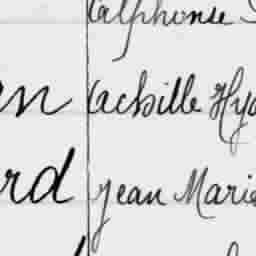 Calphonse
en Cachille Hya
rd Jean Marie